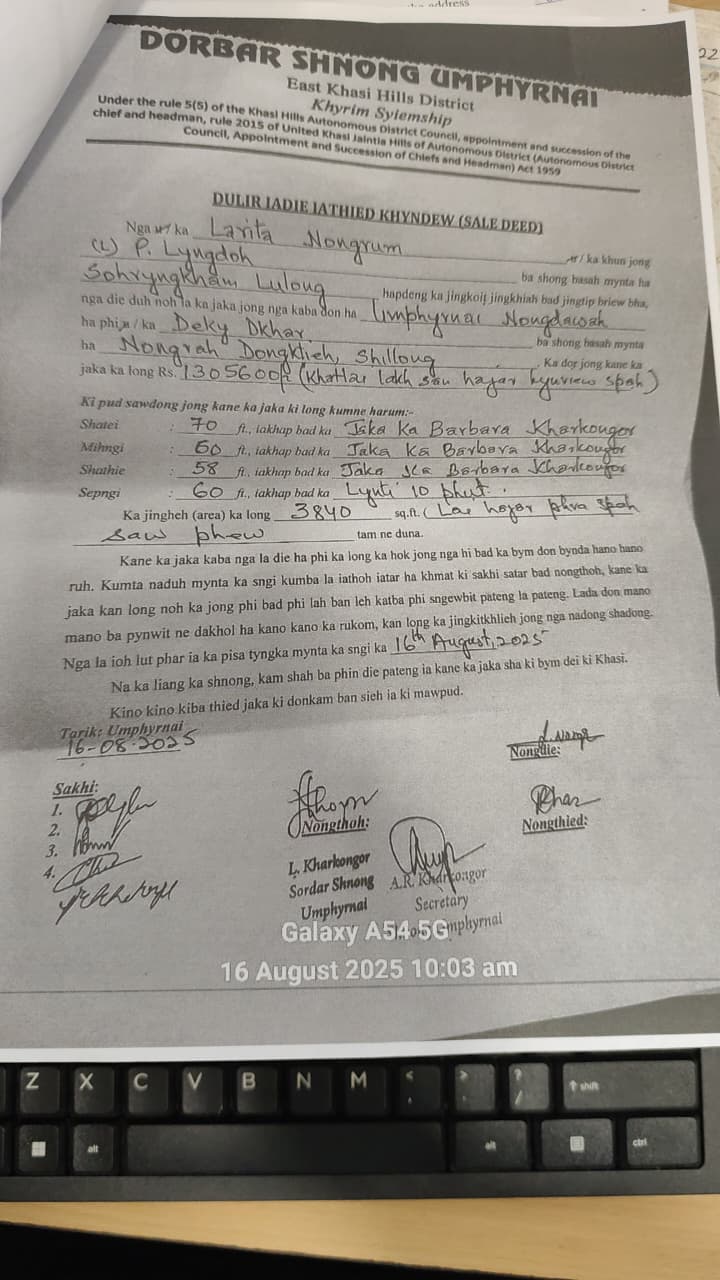 address
22
DORBAR SHNONG UMPHYRNAI
East Khasi Hills District
Khyrim Syiemship
Under the rule 5(5) of the Khasi Hills Autonomous District Council, appointment and succession of the
chief and headman, rule 2015 of United Khasi Jaintia Hills of Autonomous District (Autonomous District
Council, Appointment and Succession of Chiefs and Headman) Act 1959
DULIR IADIE IATHIED KHYNDEW (SALE DEED)
Nga u/ ka Larita Nongrum u / ka khun jong
(L) P. Lyngdoh ba shong basah mynta ha
Sohryngkham Lulong hapdeng ka jingkoit jingkhiah bad jingtip briew bha,
nga die duh noh la ka jaka jong nga kaba don ha Umphyrnai Nongdawah
ha phi u / ka Deky Dkhar ba shong basah mynta
ha Nongrah Dongktieh, Shillong . Ka dor jong kane ka
jaka ka long Rs. 1305600/- (Khatlai lakh san hajar hynriew spah)
Ki pud sawdong jong kane ka jaka ki long kumne harum:-
Shatei : 70 ft., iakhap bad ka Jaka Ka Barbara Kharkongor
Mihngi : 60 ft., iakhap bad ka Jaka Ka Barbara Kharkongor
Shathie : 58 ft., iakhap bad ka Jaka Ka Barbara Kharkongor
Sepngi : 60 ft., iakhap bad ka Lynti 10 phut.
Ka jingheh (area) ka long 3840 sq.ft. ( Lai hajar phra spah
saw phew tam ne duna.
Kane ka jaka kaba nga la die ha phi ka long ka hok jong nga hi bad ka bym don bynda hano hano
ruh. Kumta naduh mynta ka sngi kumba la iathoh iatar ha khmat ki sakhi satar bad nongthoh, kane ka
jaka kan long noh ka jong phi bad phi lah ban leh katba phi sngewbit pateng la pateng. Lada don mano
mano ba pynwit ne dakhol ha kano kano ka rukom, kan long ka jingkitkhlieh jong nga nadong shadong.
Nga la ioh lut phar ia ka pisa tyngka mynta ka sngi ka 16th August, 2025
Na ka liang ka shnong, kam shah ba phin die pateng ia kane ka jaka sha ki bym dei ki Khasi.
Kino kino kiba thied jaka ki donkam ban sieh ia ki mawpud.
Tarik: Umphyrnai
16-08-2025
Nongdie:
Sakhi:
1.
2.
3.
4.
Nongthoh:
Nongthied:
L. Kharkongor
Sordar Shnong
Umphyrnai
A.R. Kharkongor
Secretary
Umphyrnai
Galaxy A54 5G
16 August 2025 10:03 am
Z X C V B N M < , > . ? / shift
alt alt ctrl